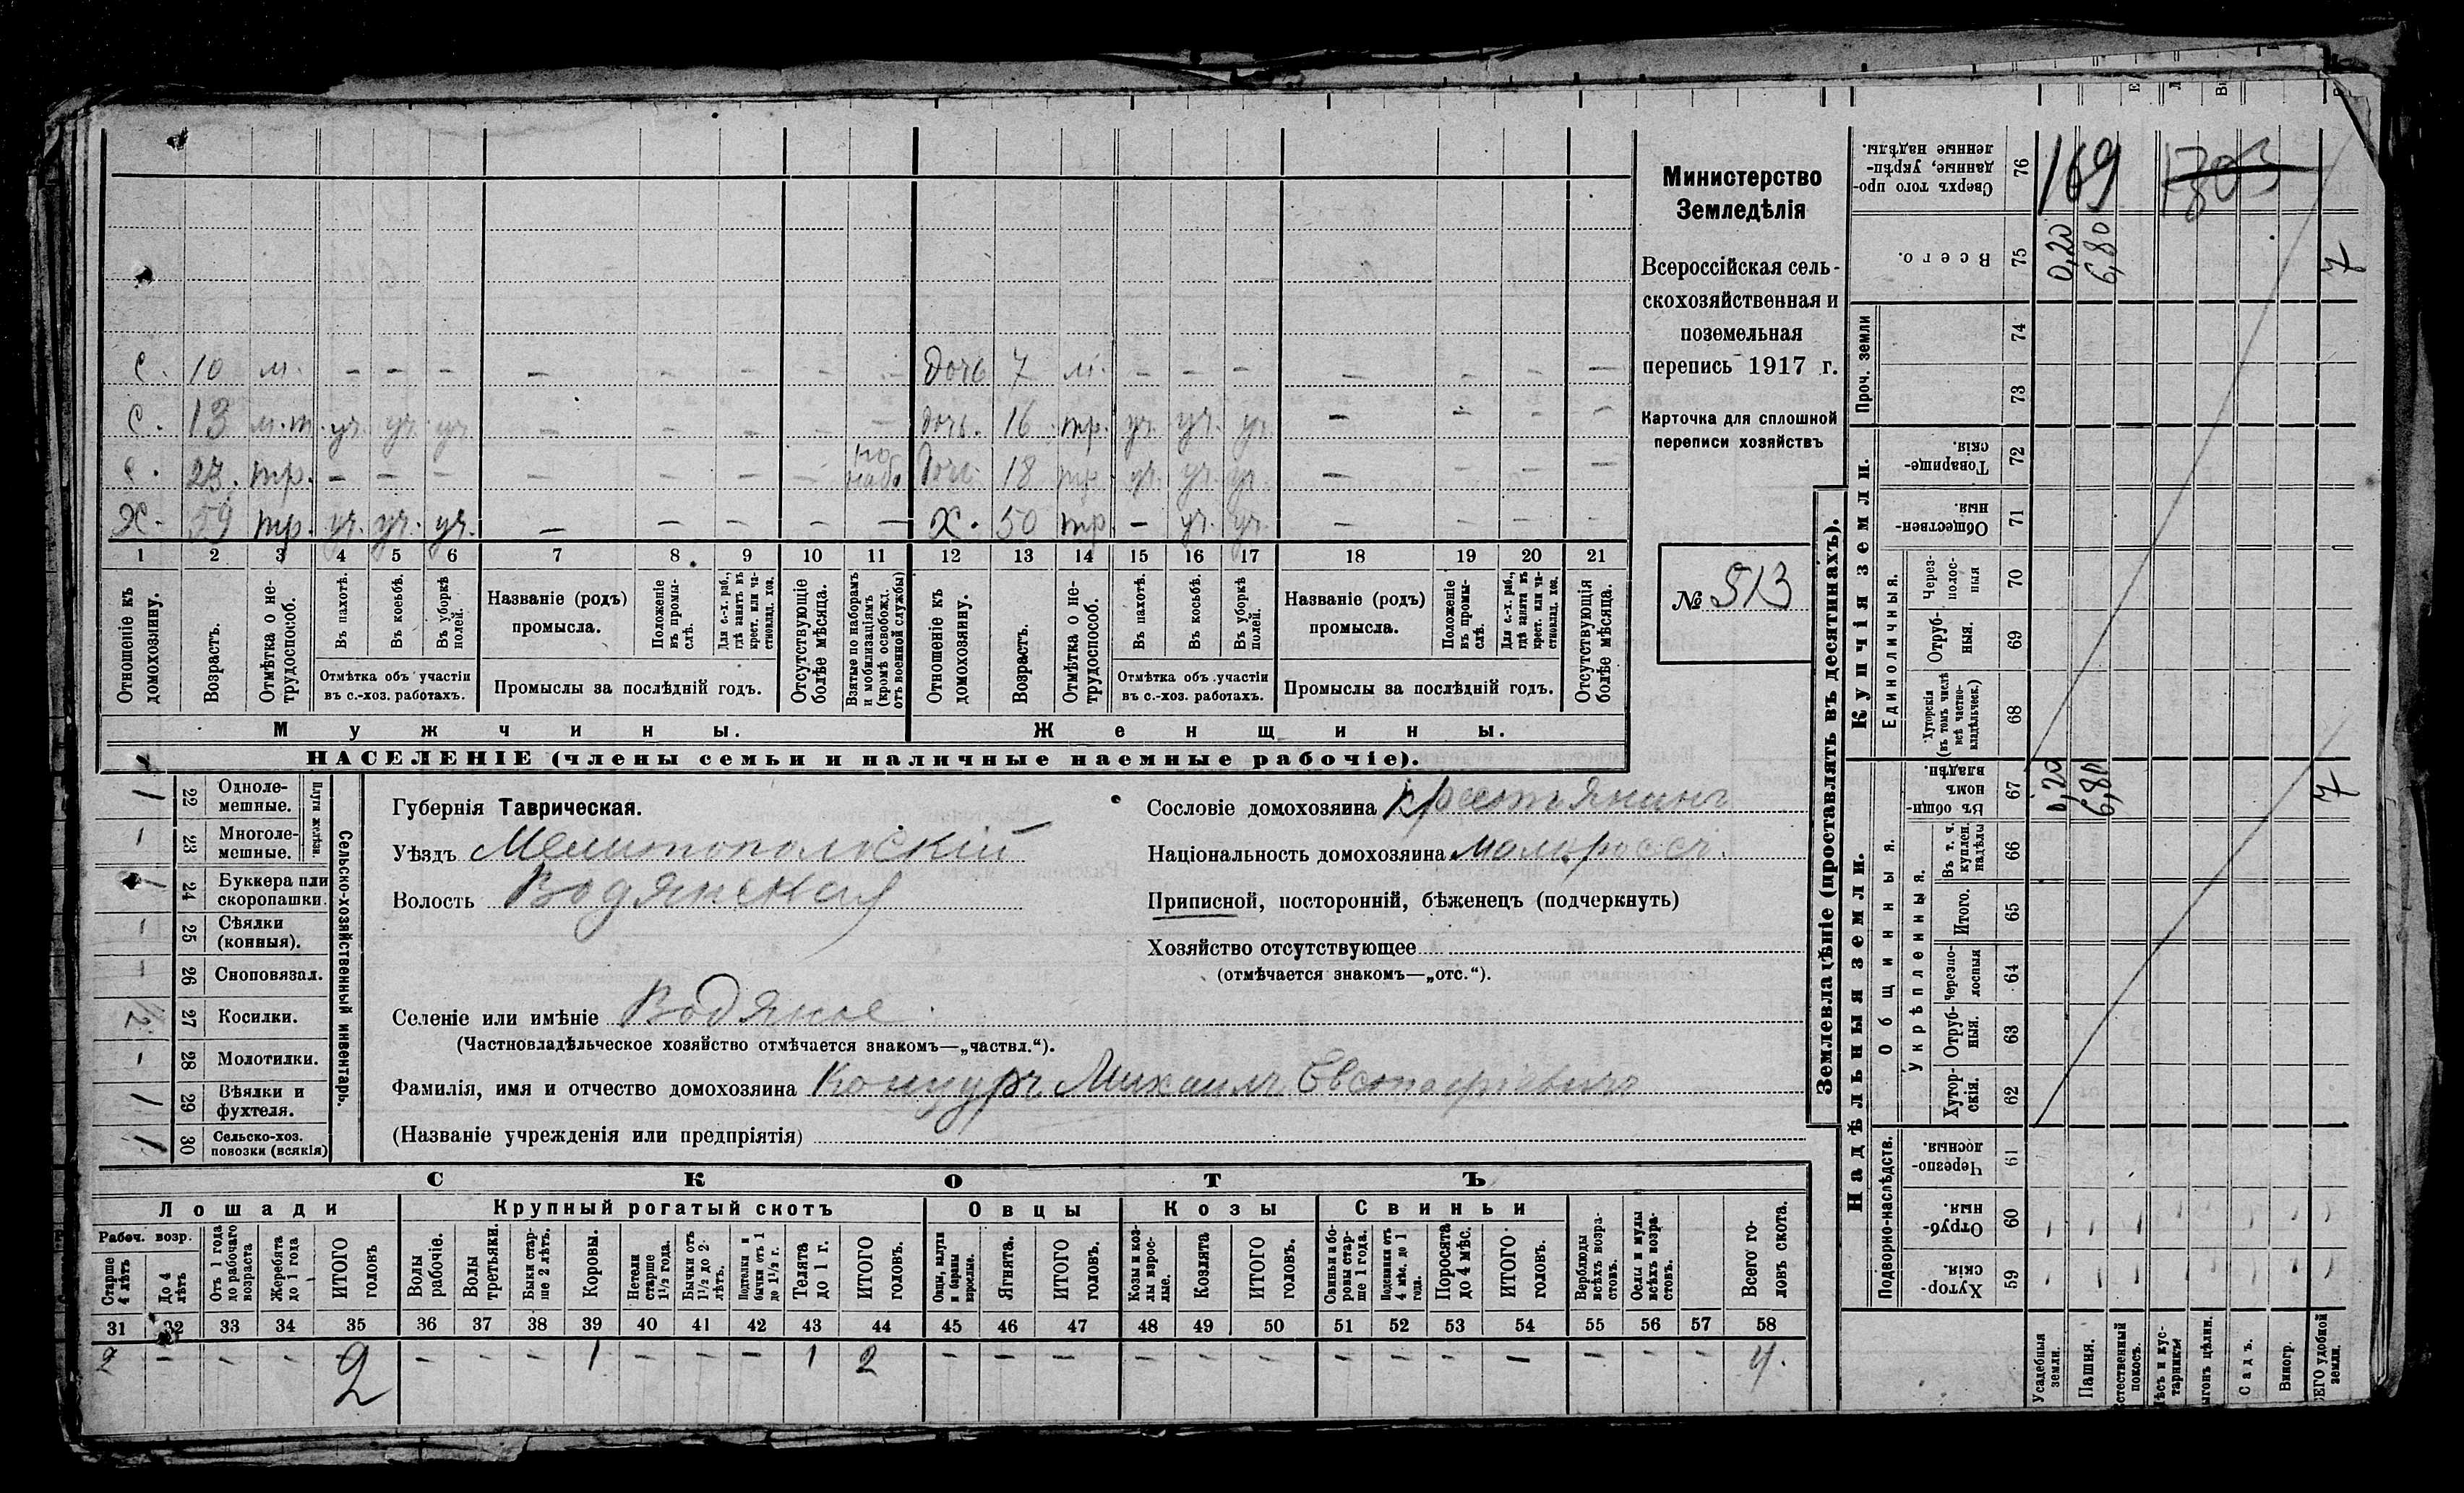 С. 10 м. - - - - - - - - Дочь 7 м. - - - - - - -
С. 13 м.т. уч. уч. уч. - - - - - Дочь. 16 тр. уч. уч. уч. - - - -
С. 23. тр. - - - - - - - по наб. Дочь 18 тр. уч. уч. уч. - - - -
Х. 59 тр. уч. уч. уч. - - - - - Х. 50 тр. - уч. уч. - - - -
1 2 3 4 5 6 7 8 9 10 11 12 13 14 15 16 17 18 19 20 21
Отношеніе къ домохозяину.
Возрастъ.
Отмѣтка о не-
трудоспособ.
Въ пахотѣ.
Въ косьбѣ.
Въ уборкѣ полей.
Отмѣтка объ участіи
въ с.-хоз. работахъ.
Названіе (родъ)
промысла.
Положеніе
въ промы-
слѣ.
Для с.-х. раб.,
гдѣ занятъ въ
крест. или ча-
стновлад. хоз.
Промыслы за послѣдній годъ.
Отсутствующіе
болѣе мѣсяца.
Взятые по наборамъ
и мобилизаціямъ
(кромѣ освобожд.
отъ военной службы)
Отношеніе къ
домохозяину.
Возрастъ.
Отмѣтка о не-
трудоспособ.
Въ пахотѣ.
Въ косьбѣ.
Въ уборкѣ
полей.
Отмѣтка объ участіи
въ с.-хоз. работахъ.
Названіе (родъ)
промысла.
Положеніе
въ промы-
слѣ.
Для с.-х. раб.,
гдѣ занята въ
крест. или ча-
стновлад. хоз.
Промыслы за послѣдній годъ.
Отсутствующія
болѣе мѣсяца.
Мужчины. Женщины.
НАСЕЛЕНІЕ (члены семьи и наличные наемные рабочіе).
Министерство
Земледѣлія
Всероссійская сель-
скохозяйственная и
поземельная
перепись 1917 г.
Карточка для сплошной
переписи хозяйствъ
№ 513
1 22 Одноле-
мешные.
- 23 Многоле-
мешные.
Плуги желѣзн.
1 24 Буккера или
скоропашки.
- 25 Сѣялки
(конныя).
- 26 Сноповязал.
1/2 27 Косилки.
- 28 Молотилки.
1 29 Вѣялки и
фухтеля.
1 30 Сельско-хоз.
повозки (всякія)
Сельско-хозяйственный инвентарь.
Губернія Таврическая.
Уѣздъ Мелитопольскій
Волость Водянская
Селеніе или имѣніе Водяное
(Частновладѣльческое хозяйство отмѣчается знакомъ—„частвл.“).
Фамилія, имя и отчество домохозяина Концуръ Михаилъ Евстафіевичъ
(Названіе учрежденія или предпріятія)
Сословіе домохозяина крестьянинъ
Національность домохозяина малоросс.
Приписной, посторонній, бѣженецъ (подчеркнуть)
Хозяйство отсутствующее
(отмѣчается знакомъ—„отс.“).
СКОТЪ
Лошади Крупный рогатый скотъ Овцы Козы Свиньи
Рабоч. возр.
Старше
4 лѣтъ
До 4
лѣтъ
Отъ 1 года
до рабочаго
возраста
Жеребята
до 1 года
ИТОГО
головъ
Волы
рабочіе.
Волы
третьяки.
Быки стар-
ше 2 лѣтъ.
Коровы.
Нетели
старше
1½ года.
Бычки отъ
1½ до 2
лѣтъ.
Подтелки и
бычки отъ 1
до 1½ г.
Телята
до 1 г.
ИТОГО
головъ.
Овцы, валухи
и бараны
взрослые.
Ягнята.
ИТОГО
головъ.
Козы и коз-
лы взрос-
лые.
Козлята
ИТОГО
головъ.
Свиньи и бо-
ровы стар-
ше 1 года.
Подсвинки отъ
4 мѣс. до 1
года.
Поросята
до 4 мѣс.
ИТОГО
головъ.
Верблюды
всѣхъ возра-
стовъ.
Ослы и мулы
всѣхъ возра-
стовъ.
Всего го-
ловъ скота.
31 32 33 34 35 36 37 38 39 40 41 42 43 44 45 46 47 48 49 50 51 52 53 54 55 56 57 58
2 - - - 2 - - - 1 - - - 1 2 - - - - - - - - - - - - - 4.
Землевладѣніе (проставлять въ десятинахъ).
Сверхъ того про-
данные, укрѣп-
ленные надѣлы. 76 169 1803
Всего. 75 0,20 6,80 7
Проч. земли 74
73
Купчія земли.
Товарище-
скія. 72
Обществен-
ныя. 71
Единоличныя.
Через-
полос-
ныя 70
Отруб-
ныя. 69
Хуторскія
(въ томъ числѣ
всѣ частно-
владѣльческ.) 68
Надѣльныя земли.
Общинныя.
Въ общи-
номъ
владѣн. 67 0,20 6,80 7
Укрѣпленныя.
Въ т. ч.
куплен.
надѣлы 66
Итого. 65
Черезпо-
лосныя 64
Отруб-
ныя. 63
Хутор-
скія. 62
Подворно-наслѣдств.
Черезпо-
лосныя. 61
Отруб-
ныя. 60
Хутор-
скія. 59
Усадебныя
земли.
Пашня.
стественный
покосъ.
ѣсъ и кус-
тарникъ
ыгонъ цѣлин.
Садъ.
Виногр.
СЕГО удобной
земли.